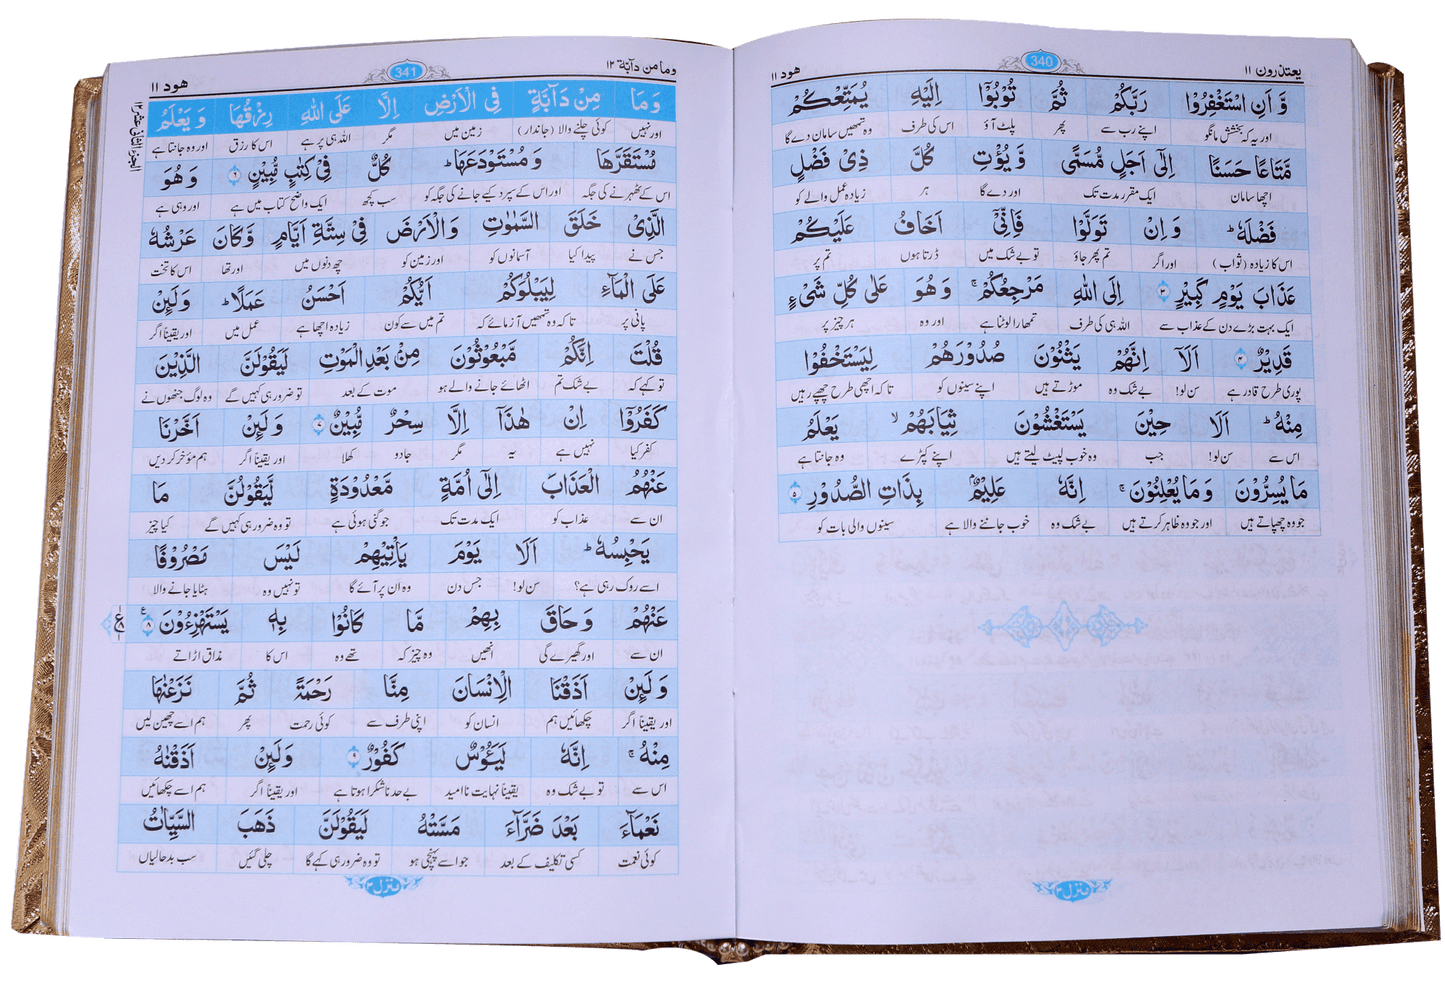 یعتذرون ۱۱
340
هود ۱۱
وَّ اَنِ اسْتَغْفِرُوْا رَبَّكُمْ ثُمَّ تُوْبُوْۤا اِلَيْهِ يُمَتِّعْكُمْ
اور یہ کہ بخشش مانگو اپنے رب سے پھر پلٹ آؤ اس کی طرف وہ تمھیں سامان دے گا
مَّتَاعًا حَسَنًا اِلٰۤى اَجَلٍ مُّسَمًّى وَّ يُؤْتِ كُلَّ ذِيْ فَضْلٍ
اچھا سامان ایک مقرر مدت تک اور دے گا ہر زیادہ عمل والے کو
فَضْلَهٗ ؕ وَ اِنْ تَوَلَّوْا فَاِنِّيْۤ اَخَافُ عَلَيْكُمْ
اس کا زیادہ (ثواب) اور اگر تم پھر جاؤ تو بے شک میں ڈرتا ہوں تم پر
عَذَابَ يَوْمٍ كَبِيْرٍ ۳ اِلَى اللّٰهِ مَرْجِعُكُمْ ۚ وَ هُوَ عَلٰى كُلِّ شَيْءٍ
ایک بہت بڑے دن کے عذاب سے اللہ ہی کی طرف تمھارا لوٹنا ہے اور وہ ہر چیز پر
قَدِيْرٌ ۴ اَلَاۤ اِنَّهُمْ يَثْنُوْنَ صُدُوْرَهُمْ لِيَسْتَخْفُوْا
پوری طرح قادر ہے سن لو! بے شک وہ موڑتے ہیں اپنے سینوں کو تا کہ اچھی طرح چھپے رہیں
مِنْهُ ؕ اَلَا حِيْنَ يَسْتَغْشُوْنَ ثِيَابَهُمْ ۙ يَعْلَمُ
اس سے سن لو! جب وہ خوب لپیٹ لیتے ہیں اپنے کپڑے وہ جانتا ہے
مَا يُسِرُّوْنَ وَ مَا يُعْلِنُوْنَ ۚ اِنَّهٗ عَلِيْمٌۢ بِذَاتِ الصُّدُوْرِ ۵
جو وہ چھپاتے ہیں اور جو وہ ظاہر کرتے ہیں بے شک وہ خوب جاننے والا ہے سینوں والی بات کو
منزل ۳
وما من دآبة ۱۲
341
هود ۱۱
وَ مَا مِنْ دَآبَّةٍ فِي الْاَرْضِ اِلَّا عَلَى اللّٰهِ رِزْقُهَا وَ يَعْلَمُ
اور نہیں کوئی چلنے والا (جاندار) زمین میں مگر اللہ ہی پر ہے اس کا رزق اور وہ جانتا ہے
مُسْتَقَرَّهَا وَ مُسْتَوْدَعَهَا ؕ كُلٌّ فِيْ كِتٰبٍ مُّبِيْنٍ ۶ وَ هُوَ
اس کے ٹھہرنے کی جگہ اور اس کے سپرد کیے جانے کی جگہ کو سب کچھ ایک واضح کتاب میں ہے اور وہی ہے
الَّذِيْ خَلَقَ السَّمٰوٰتِ وَ الْاَرْضَ فِيْ سِتَّةِ اَيَّامٍ وَّ كَانَ عَرْشُهٗ
جس نے پیدا کیا آسمانوں کو اور زمین کو چھ دنوں میں اور تھا اس کا تخت
عَلَى الْمَآءِ لِيَبْلُوَكُمْ اَيُّكُمْ اَحْسَنُ عَمَلًا ؕ وَ لَىِٕنْ
پانی پر تا کہ وہ تمھیں آزمائے کہ تم میں سے کون زیادہ اچھا ہے عمل میں اور یقیناً اگر
قُلْتَ اِنَّكُمْ مَّبْعُوْثُوْنَ مِنْۢ بَعْدِ الْمَوْتِ لَيَقُوْلَنَّ الَّذِيْنَ
تو کہے کہ بے شک تم اٹھائے جانے والے ہو موت کے بعد تو ضرور ہی کہیں گے وہ لوگ جنھوں نے
كَفَرُوْۤا اِنْ هٰذَاۤ اِلَّا سِحْرٌ مُّبِيْنٌ ۷ وَ لَىِٕنْ اَخَّرْنَا
کفر کیا نہیں ہے یہ مگر جادو کھلا اور یقیناً اگر ہم مؤخر کر دیں
عَنْهُمُ الْعَذَابَ اِلٰۤى اُمَّةٍ مَّعْدُوْدَةٍ لَّيَقُوْلُنَّ مَا
ان سے عذاب کو ایک مدت تک جو گنی ہوئی ہے تو وہ ضرور ہی کہیں گے کیا چیز
يَحْبِسُهٗ ؕ اَلَا يَوْمَ يَاْتِيْهِمْ لَيْسَ مَصْرُوْفًا
اسے روک رہی ہے؟ سن لو! جس دن وہ ان پر آئے گا تو نہیں وہ ہٹایا جانے والا
عَنْهُمْ وَ حَاقَ بِهِمْ مَّا كَانُوْا بِهٖ يَسْتَهْزِءُوْنَ ۸
ان سے اور گھیرے گی انھیں وہ چیز کہ تھے وہ اس کا مذاق اڑاتے
وَ لَىِٕنْ اَذَقْنَا الْاِنْسَانَ مِنَّا رَحْمَةً ثُمَّ نَزَعْنٰهَا
اور یقیناً اگر چکھائیں ہم انسان کو اپنی طرف سے کوئی رحمت پھر ہم اسے چھین لیں
مِنْهُ ۚ اِنَّهٗ لَيَـُٔوْسٌ كَفُوْرٌ ۹ وَ لَىِٕنْ اَذَقْنٰهُ
اس سے تو بے شک وہ یقیناً نہایت نا امید بے حد ناشکرا ہوتا ہے اور یقیناً اگر ہم اسے چکھائیں
نَعْمَآءَ بَعْدَ ضَرَّآءَ مَسَّتْهُ لَيَقُوْلَنَّ ذَهَبَ السَّيِّاٰتُ
کوئی نعمت کسی تکلیف کے بعد جو اسے پہنچی ہو تو وہ ضرور ہی کہے گا چلی گئیں سب بدحالیاں
منزل ۳
الجزء الثانی عشر ۱۲